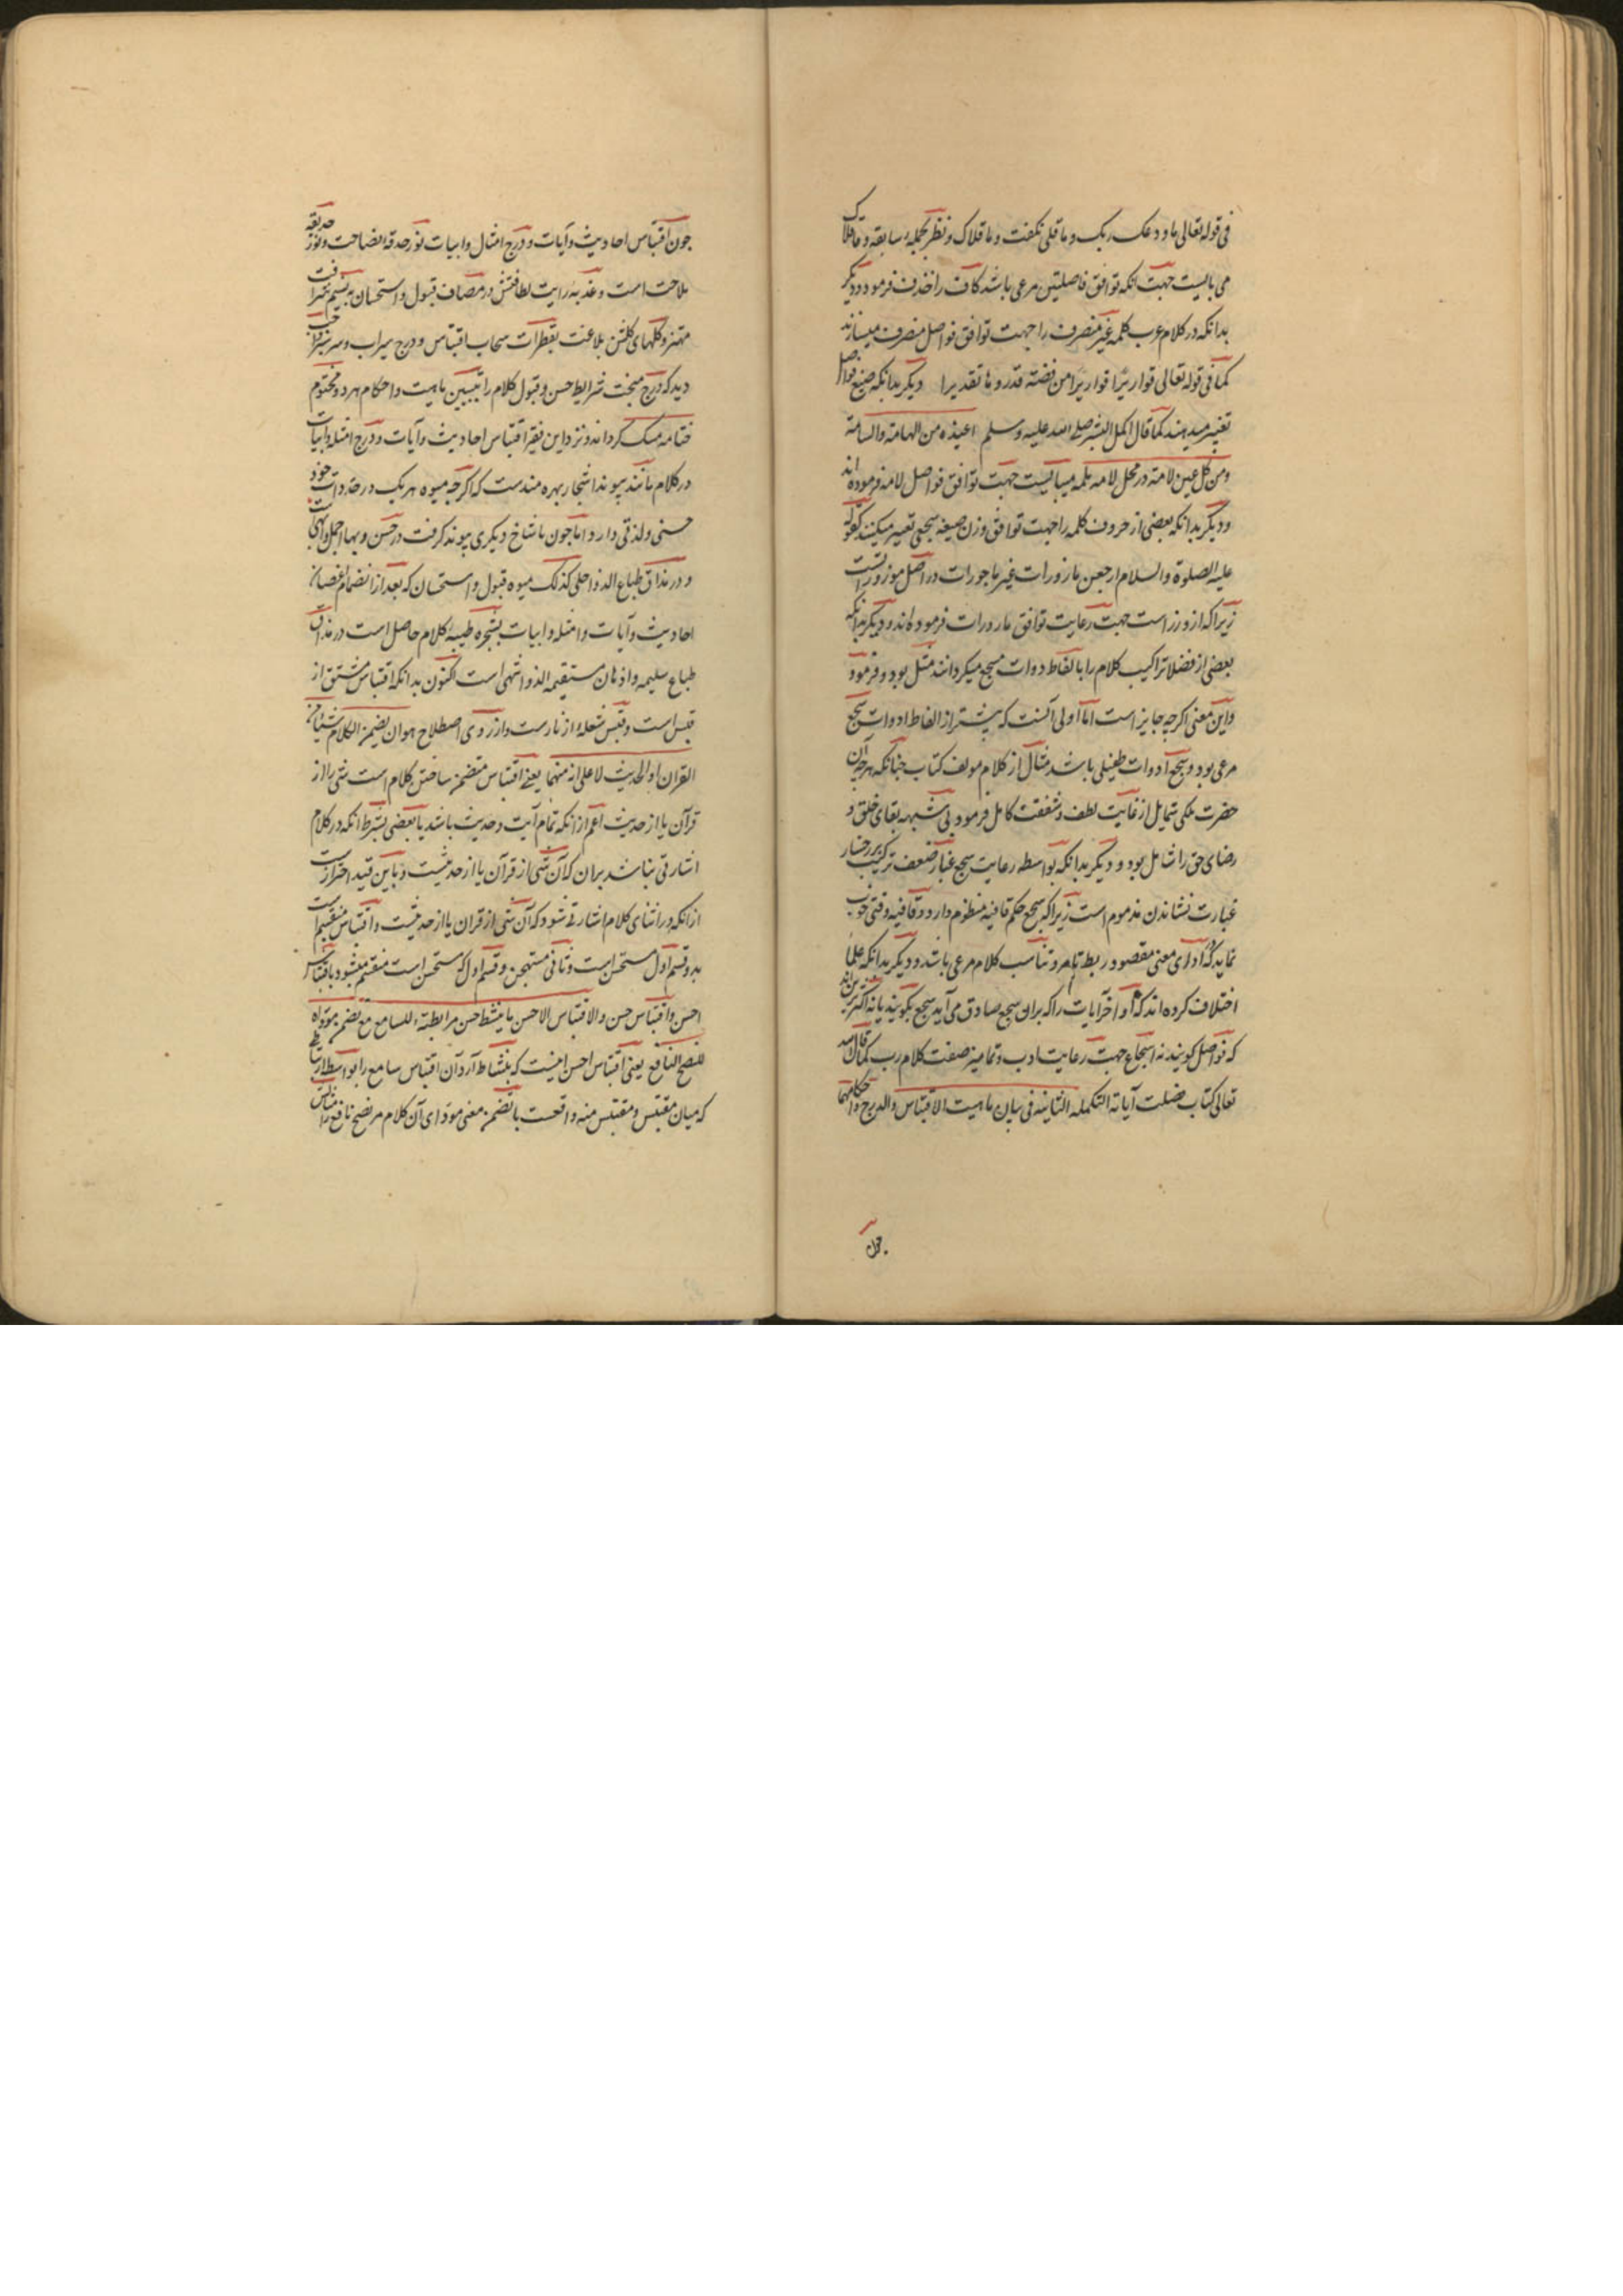 فی قوله تعالی ما ودعک ربک و ما قلی نکفت وما قلاک ونظر بجمله سابقه وما قلاک
می بایست جهت انکه توافق فاصلتین مرعی باشد کاف را حذف فرمود ودیکر
بدانکه در کلام عرب کلمه غیر منصرف را جهت توافق فواصل منصرف میسازند
کما فی قوله تعالی قواریرًا قواریرًا من فضته قدروها تقدیرا دیکر بدانکه صیغ فواصل
تغییر میدهند کما قال اکمل البشر صلی الله علیه وسلم اعیذه من الهامة والسامة
ومن کل عین لامة در محل لامه ملمه میبایست جهت توافق فواصل لامه فرموده اند
ودیکر بدانکه بعضی از حروف کلمه را جهت توافق وزن صیغه سجعی تغییر میکنند کقوله
علیه الصلوة والسلام ارجعن مازورات غیر ماجورات در اصل موزوراتست
زیراکه از وزر است جهت رعایت توافق مازورات فرموده اند ودیکر بدانکه
بعضی از فضلا تراکیب کلام را بالفاظ دوات مسجع میکردانند مثل بود و فرمود
واین معنی اکرچه جایز است اما اولی آنست که پیشتر از الفاظ ادوات سجع
مرعی بود و سجع ادوات طفیلی باشد مثال از کلام مولف کتاب جنانکه هرجه آن
حضرت ملکی شمایل از غایت لطف و شفقت کامل فرمود بی شبهه بقای خلق و
رضای حق را شامل بود و دیکر بدانکه بواسطه رعایت سجع غبار ضعف ترکیب بر رخسار
عبارت نشاندن مذموم است زیراکه سجع حکم قافیه منظوم دارد وقافیه وقتی خوب
نماید که ادای معنی مقصود و ربط تام و تناسب کلام مرعی باشد ودیکر بدانکه علما
اختلاف کرده اند که اواخر آیات را که بران سجع صادق می آید سجع بکویند یا نه اکثر برین اند
که فواصل کویند نه اسجاع جهت رعایت ادب وتمامیز صفت کلام رب کما قال الله
تعالی کتاب فصلت آیاته التکمله الثانیه فی بیان ماهیت الاقتباس والدرج واحکامهما
جون
جون اقتباس احادیث وآیات ودرج امثال وابیات نور حدقه فصاحت ونور حدیقه
ملاحت است وعذبه رایت لطافتش در مصاف قبول واستحسان به نسیم شرافت
مهتز وکلهای کلشن بلاغت بقطرات سحاب اقتباس ودرج سیراب وسرسبز واجب
دید که درج مبحث شرایط حسن وقبول کلام را بتبیین ماهیت واحکام هردو مختوم
ختامه مسک کرداند ونزد این فقیر اقتباس احادیث وآیات ودرج امثله وابیات
در کلام مانند پیوند اشجار بهره مندست که اکرچه میوه هریک در حد ذات خود
حسنی ولذتی دارد اما جون با شاخ دیکری پیوند کرفت در حسن وبها اجمل وابهی است
و در مذاق طباع الذ واحلی کذلک میوه قبول واستحسان که بعد از انضمام اغصان
احادیث وآیات وامثله وابیات بشجره طیبه کلام حاصل است در مذاق
طباع سلیمه واذهان مستقیمه الذ واشهی است اکنون بدانکه اقتباس مشتق از
قبس است وقبس شعله از نارست واز روی اصطلاح هو ان یضمن الکلام شیئا من
القران او الحدیث لا علی انه منهما یعنی اقتباس متضمن ساختن کلام است شی را از
قرآن یا از حدیث اعم از انکه تمام آیت وحدیث باشد یا بعضی بشرط انکه در کلام
اشارتی نباشد بران که آن شی از قرآن یا از حدیثست وباین قید احترازست
از انکه در اثنای کلام اشارتی شود که آن شی از قران یا از حدیثست واقتباس منقسم است
بدو قسم اول مستحسن است وثانی مستهجن وقسم اول که مستحسن است منقسم میشود باقتباس
احسن واقتباس حسن والاقتباس الاحسن ما ینشط حسن مرابطته للسامع مع تضمن موداه
للنصح النافع یعنی اقتباس احسن انیست که بنشاط آرد آن اقتباس سامع را بواسطه ارتباطی
که میان مقتبس ومقتبس منه واقعست با تضمن معنی مودای آن کلام مر نصح نافع را